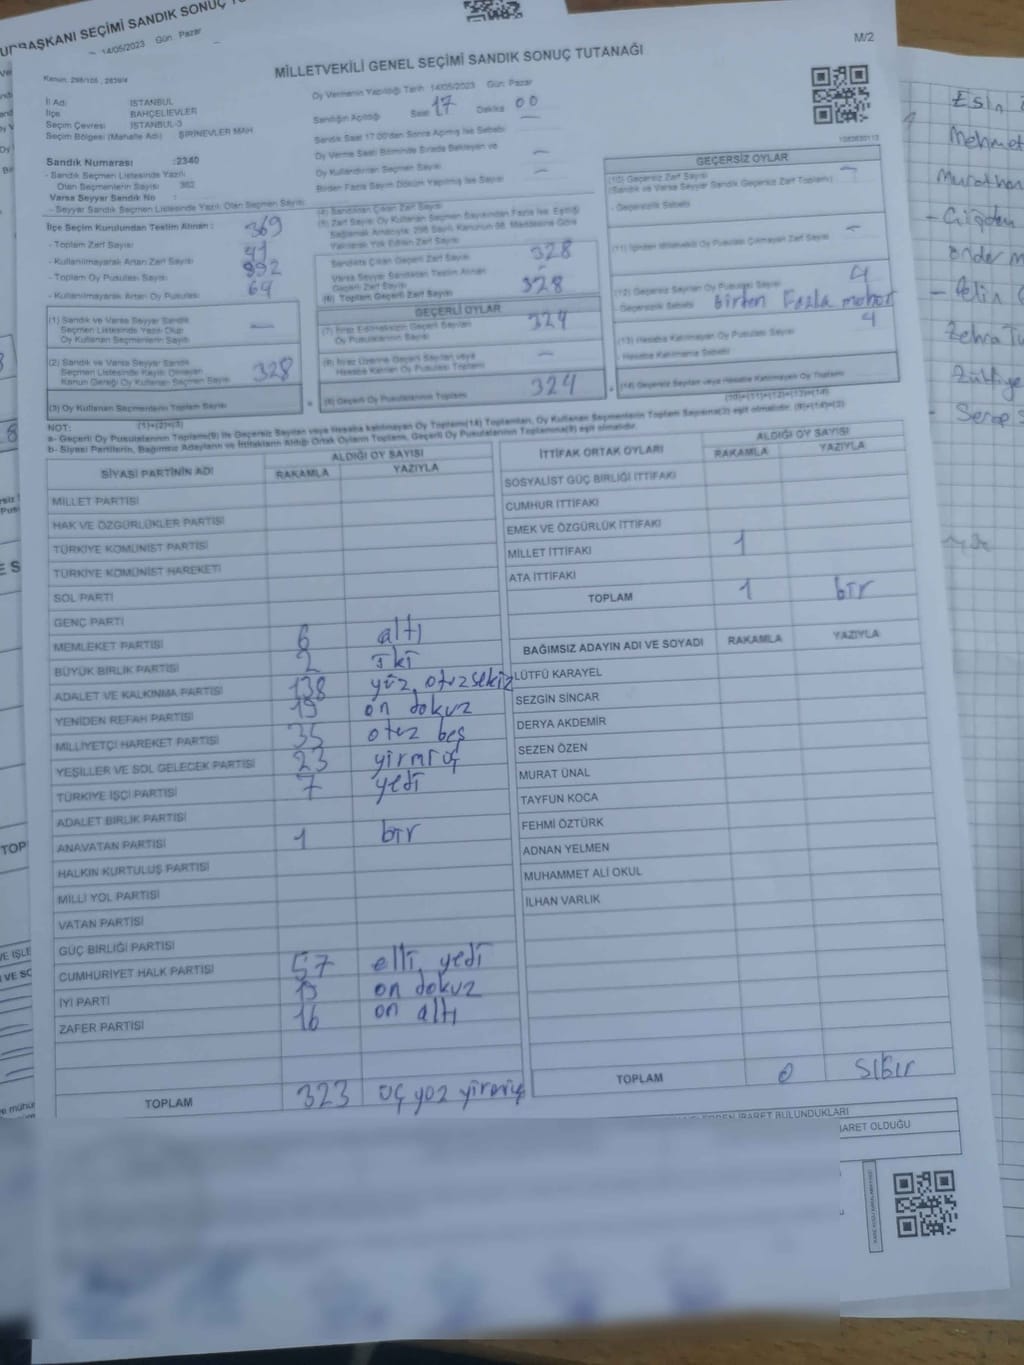 CUMHURBAŞKANI SEÇİMİ SANDIK SONUÇ
14/05/2023 Gün Pazar
MİLLETVEKİLİ GENEL SEÇİMİ SANDIK SONUÇ TUTANAĞI
M/2
İl Adı : İSTANBUL
İlçe : BAHÇELİEVLER
Seçim Çevresi : İSTANBUL-3
Seçim Bölgesi (Mahalle Adı) : ŞİRİNEVLER MAH
Oy Vermenin Yapıldığı Tarih 14/05/2023 Gün Pazar
Sandığın Açıldığı Saat 17 Dakika 00
Sandık Saat 17:00'dan Sonra Açılmış İse Sebebi —
Oy Verme Saati Bitiminde Sırada Bekleyen ve
Oy Kullandırılan Seçmen Sayısı —
Birden Fazla Sayım Döküm Yapılmış İse Sayısı —
Sandık Numarası :2340
- Sandık Seçmen Listesinde Yazılı
Olan Seçmenlerin Sayısı
Varsa Seyyar Sandık No :
- Seyyar Sandık Seçmen Listesinde Yazılı Olan Seçmen Sayısı
İlçe Seçim Kurulundan Teslim Alınan :
- Toplam Zarf Sayısı 369
- Kullanılmayarak Artan Zarf Sayısı 41
- Toplam Oy Pusulası Sayısı
- Kullanılmayarak Artan Oy Pusulası 64
(1) Sandık ve Varsa Seyyar Sandık
Seçmen Listesinde Yazılı Olup
Oy Kullanan Seçmenlerin Sayısı —
(2) Sandık ve Varsa Seyyar Sandık
Seçmen Listesinde Kayıtlı Olmayan
Kanun Gereği Oy Kullanan Seçmen Sayısı 328
(3) Oy Kullanan Seçmenlerin Toplam Sayısı
(1)+(2)=(3)
(4) Sandıktan Çıkan Zarf Sayısı
Sandıkta Çıkan Geçerli Zarf Sayısı 328
Varsa Seyyar Sandıktan Teslim Alınan
Geçerli Zarf Sayısı -
(6) Toplam Geçerli Zarf Sayısı 328
GEÇERLİ OYLAR
(7) İtiraz Edilmeksizin Geçerli Sayılan
Oy Pusulalarının Sayısı 324
(8) İtiraz Üzerine Geçerli Sayılan veya
Hesaba Katılan Oy Pusulası Toplamı —
(9) Geçerli Oy Pusulalarının Toplamı 324
GEÇERSİZ OYLAR
(10) Geçersiz Zarf Sayısı
(Sandık ve Varsa Seyyar Sandık Geçersiz Zarf Toplamı) —
- Geçersizlik Sebebi
(11) İçinden Milletvekili Oy Pusulası Çıkmayan Zarf Sayısı —
(12) Geçersiz Sayılan Oy Pusulası Sayısı 4
- Geçersizlik Sebebi Birden Fazla mühür
(13) Hesaba Katılmayan Oy Pusulası Sayısı 4
- Hesaba Katılmama Sebebi
(14) Geçersiz Sayılan veya Hesaba Katılmayan Oy Toplamı
(10)+(11)+(12)+(13)=(14)
NOT:
a- Geçerli Oy Pusulalarının Toplamı(9) ile Geçersiz Sayılan veya Hesaba katılmayan Oy Toplamı(14) Toplamları, Oy Kullanan Seçmenlerin Toplam Sayısına(3) eşit olmalıdır. (9)+(14)=(3)
b- Siyasi Partilerin, Bağımsız Adayların ve İttifakların Aldığı Ortak Oyların Toplamı, Geçerli Oy Pusulalarının Toplamına(9) eşit olmalıdır.
SİYASİ PARTİNİN ADI
ALDIĞI OY SAYISI
RAKAMLA YAZIYLA
MİLLET PARTİSİ
HAK VE ÖZGÜRLÜKLER PARTİSİ
TÜRKİYE KOMÜNİST PARTİSİ
TÜRKİYE KOMÜNİST HAREKETİ
SOL PARTİ
GENÇ PARTİ
MEMLEKET PARTİSİ 6 altı
BÜYÜK BİRLİK PARTİSİ 2 iki
ADALET VE KALKINMA PARTİSİ 138 yüz otuzsekiz
YENİDEN REFAH PARTİSİ 19 on dokuz
MİLLİYETÇİ HAREKET PARTİSİ 35 otuz beş
YEŞİLLER VE SOL GELECEK PARTİSİ 23 yirmiüç
TÜRKİYE İŞÇİ PARTİSİ 7 yedi
ADALET BİRLİK PARTİSİ
ANAVATAN PARTİSİ 1 bir
HALKIN KURTULUŞ PARTİSİ
MİLLİ YOL PARTİSİ
VATAN PARTİSİ
GÜÇ BİRLİĞİ PARTİSİ
CUMHURİYET HALK PARTİSİ 57 elli yedi
İYİ PARTİ 19 on dokuz
ZAFER PARTİSİ 16 on altı
TOPLAM 323 üç yüz yirmiüç
İTTİFAK ORTAK OYLARI
ALDIĞI OY SAYISI
RAKAMLA YAZIYLA
SOSYALİST GÜÇ BİRLİĞİ İTTİFAKI
CUMHUR İTTİFAKI
EMEK VE ÖZGÜRLÜK İTTİFAKI
MİLLET İTTİFAKI 1
ATA İTTİFAKI
TOPLAM 1 bir
BAĞIMSIZ ADAYIN ADI VE SOYADI RAKAMLA YAZIYLA
LÜTFÜ KARAYEL
SEZGİN SİNCAR
DERYA AKDEMİR
SEZEN ÖZEN
MURAT ÜNAL
TAYFUN KOCA
FEHMİ ÖZTÜRK
ADNAN YELMEN
MUHAMMET ALİ OKUL
İLHAN VARLIK
TOPLAM 0 sıfır
İBARET BULUNDUKLARI
BARET OLDUĞU
Esin
Mehmet
Çiğdem
Önder
Pelin
Zehra
Zülfiye
Serap